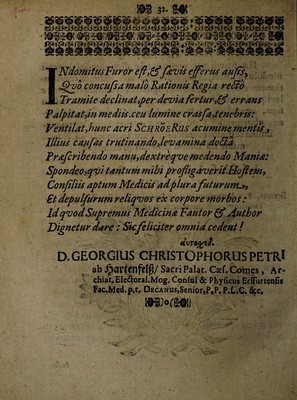 32.
INdomitus Furor est, & sævis efferus ausis,
Quò concussa malò Rationis Regia recto
Tramite declinat, per devia fertur, & errans
Palpitat, in mediis ceu lumine crassa, tenebris:
Ventilat, hunc acri SCHRÖSRus acumine mentis,
Illius causas trutinando, levamina doctâ
Præscribendo manu, dextréque medendo Maniæ:
Spondeo, qvi tantùm mihi profligaverit Hostem,
Consiliis aptum Medicis ad plura futurum,
Et depulsurum reliqvos ex corpore morbos:
Id qvod Supremus Medicinæ Fautor & Author
Dignetur dare: Sic feliciter omnia cedent!
D. GEORGIUS CHRISTOPHORUS PETRI
ab Hartenfelß / Sacri Palat. Cæs. Comes, Ar-
chiat. Electoral. Mog. Consul & Physicus Erffurtensis
Fac. Med. p. t. DECANUS, Senior, P. P. P. L. C. &c.